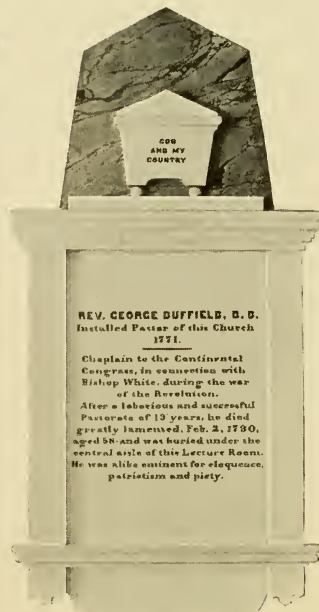 GOD
AND MY
COUNTRY
REV. GEORGE DUFFIELD, D. D.
Installed Pastor of this Church
1771.
Chaplain to the Continental
Congress, in connection with
Bishop White, during the war
of the Revolution.
After a laborious and successful
Pastorate of 19 years, he died
greatly lamented, Feb. 2, 1790,
aged 58 and was buried under the
central aisle of this Lecture Room.
He was alike eminent for eloquence,
patriotism and piety.